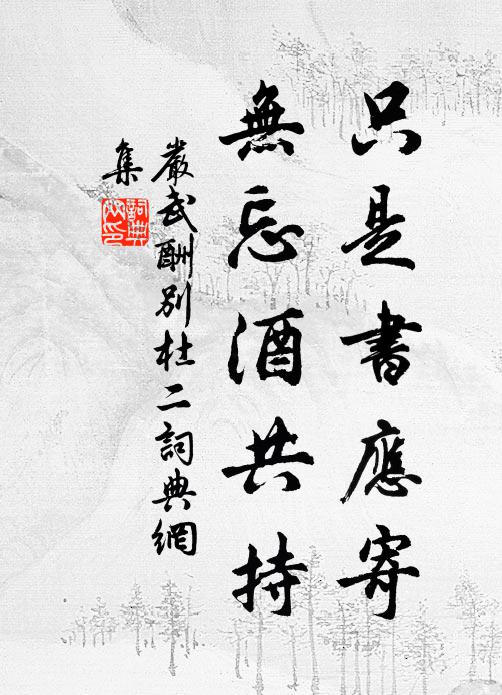 只是書應寄
無忘酒共持
嚴武酬別杜二詞典網
集
詞典